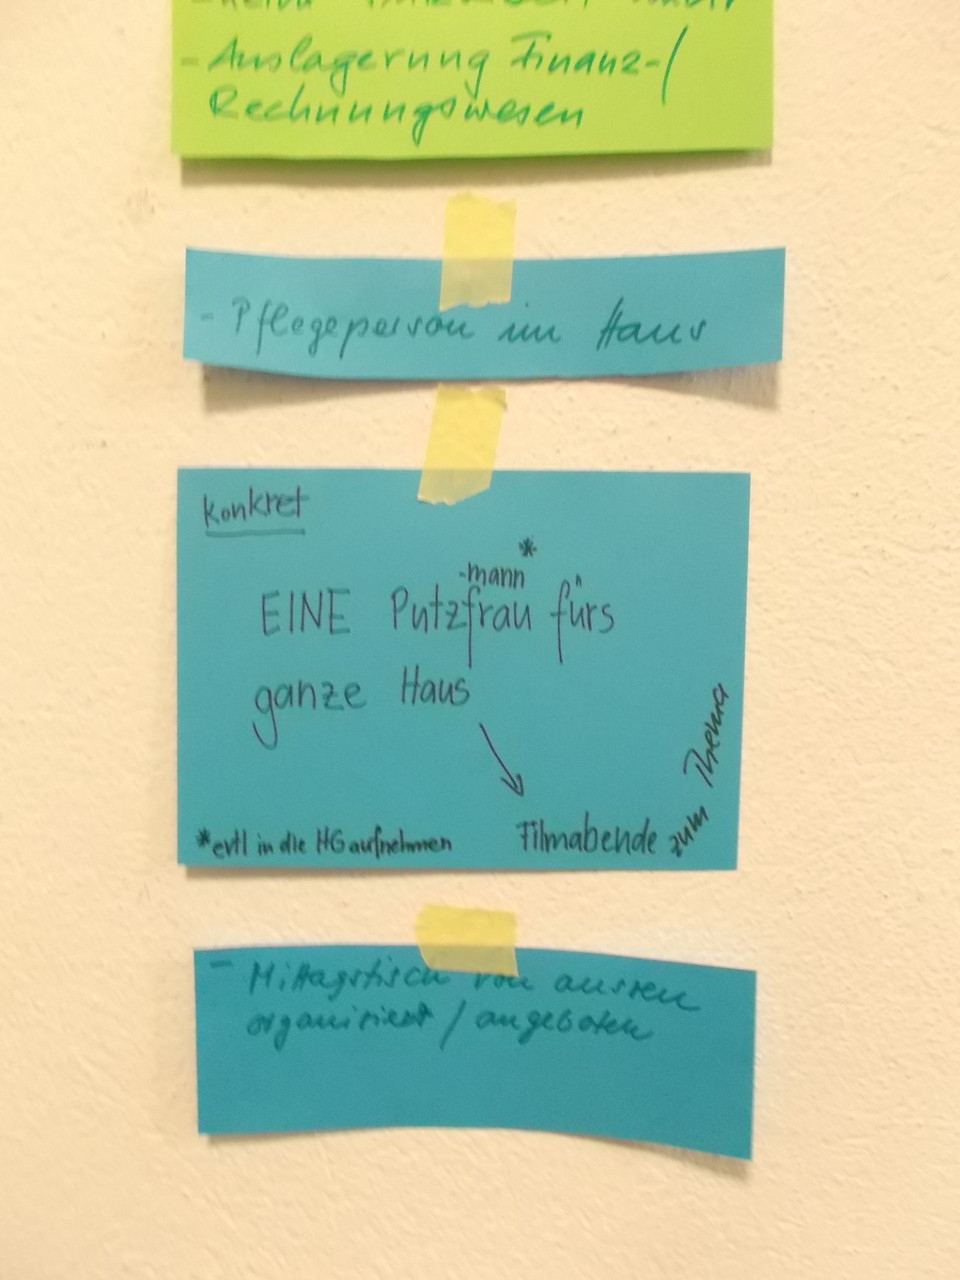 - Auslagerung Finanz-/
Rechnungswesen
- Pflegeperson im Haus
Konkret
-mann*
EINE Putzfrau fürs
ganze Haus
Filmabende zum Thema
*evtl in die HG aufnehmen
- Mittagstisch von aussen
organisiert / angeboten